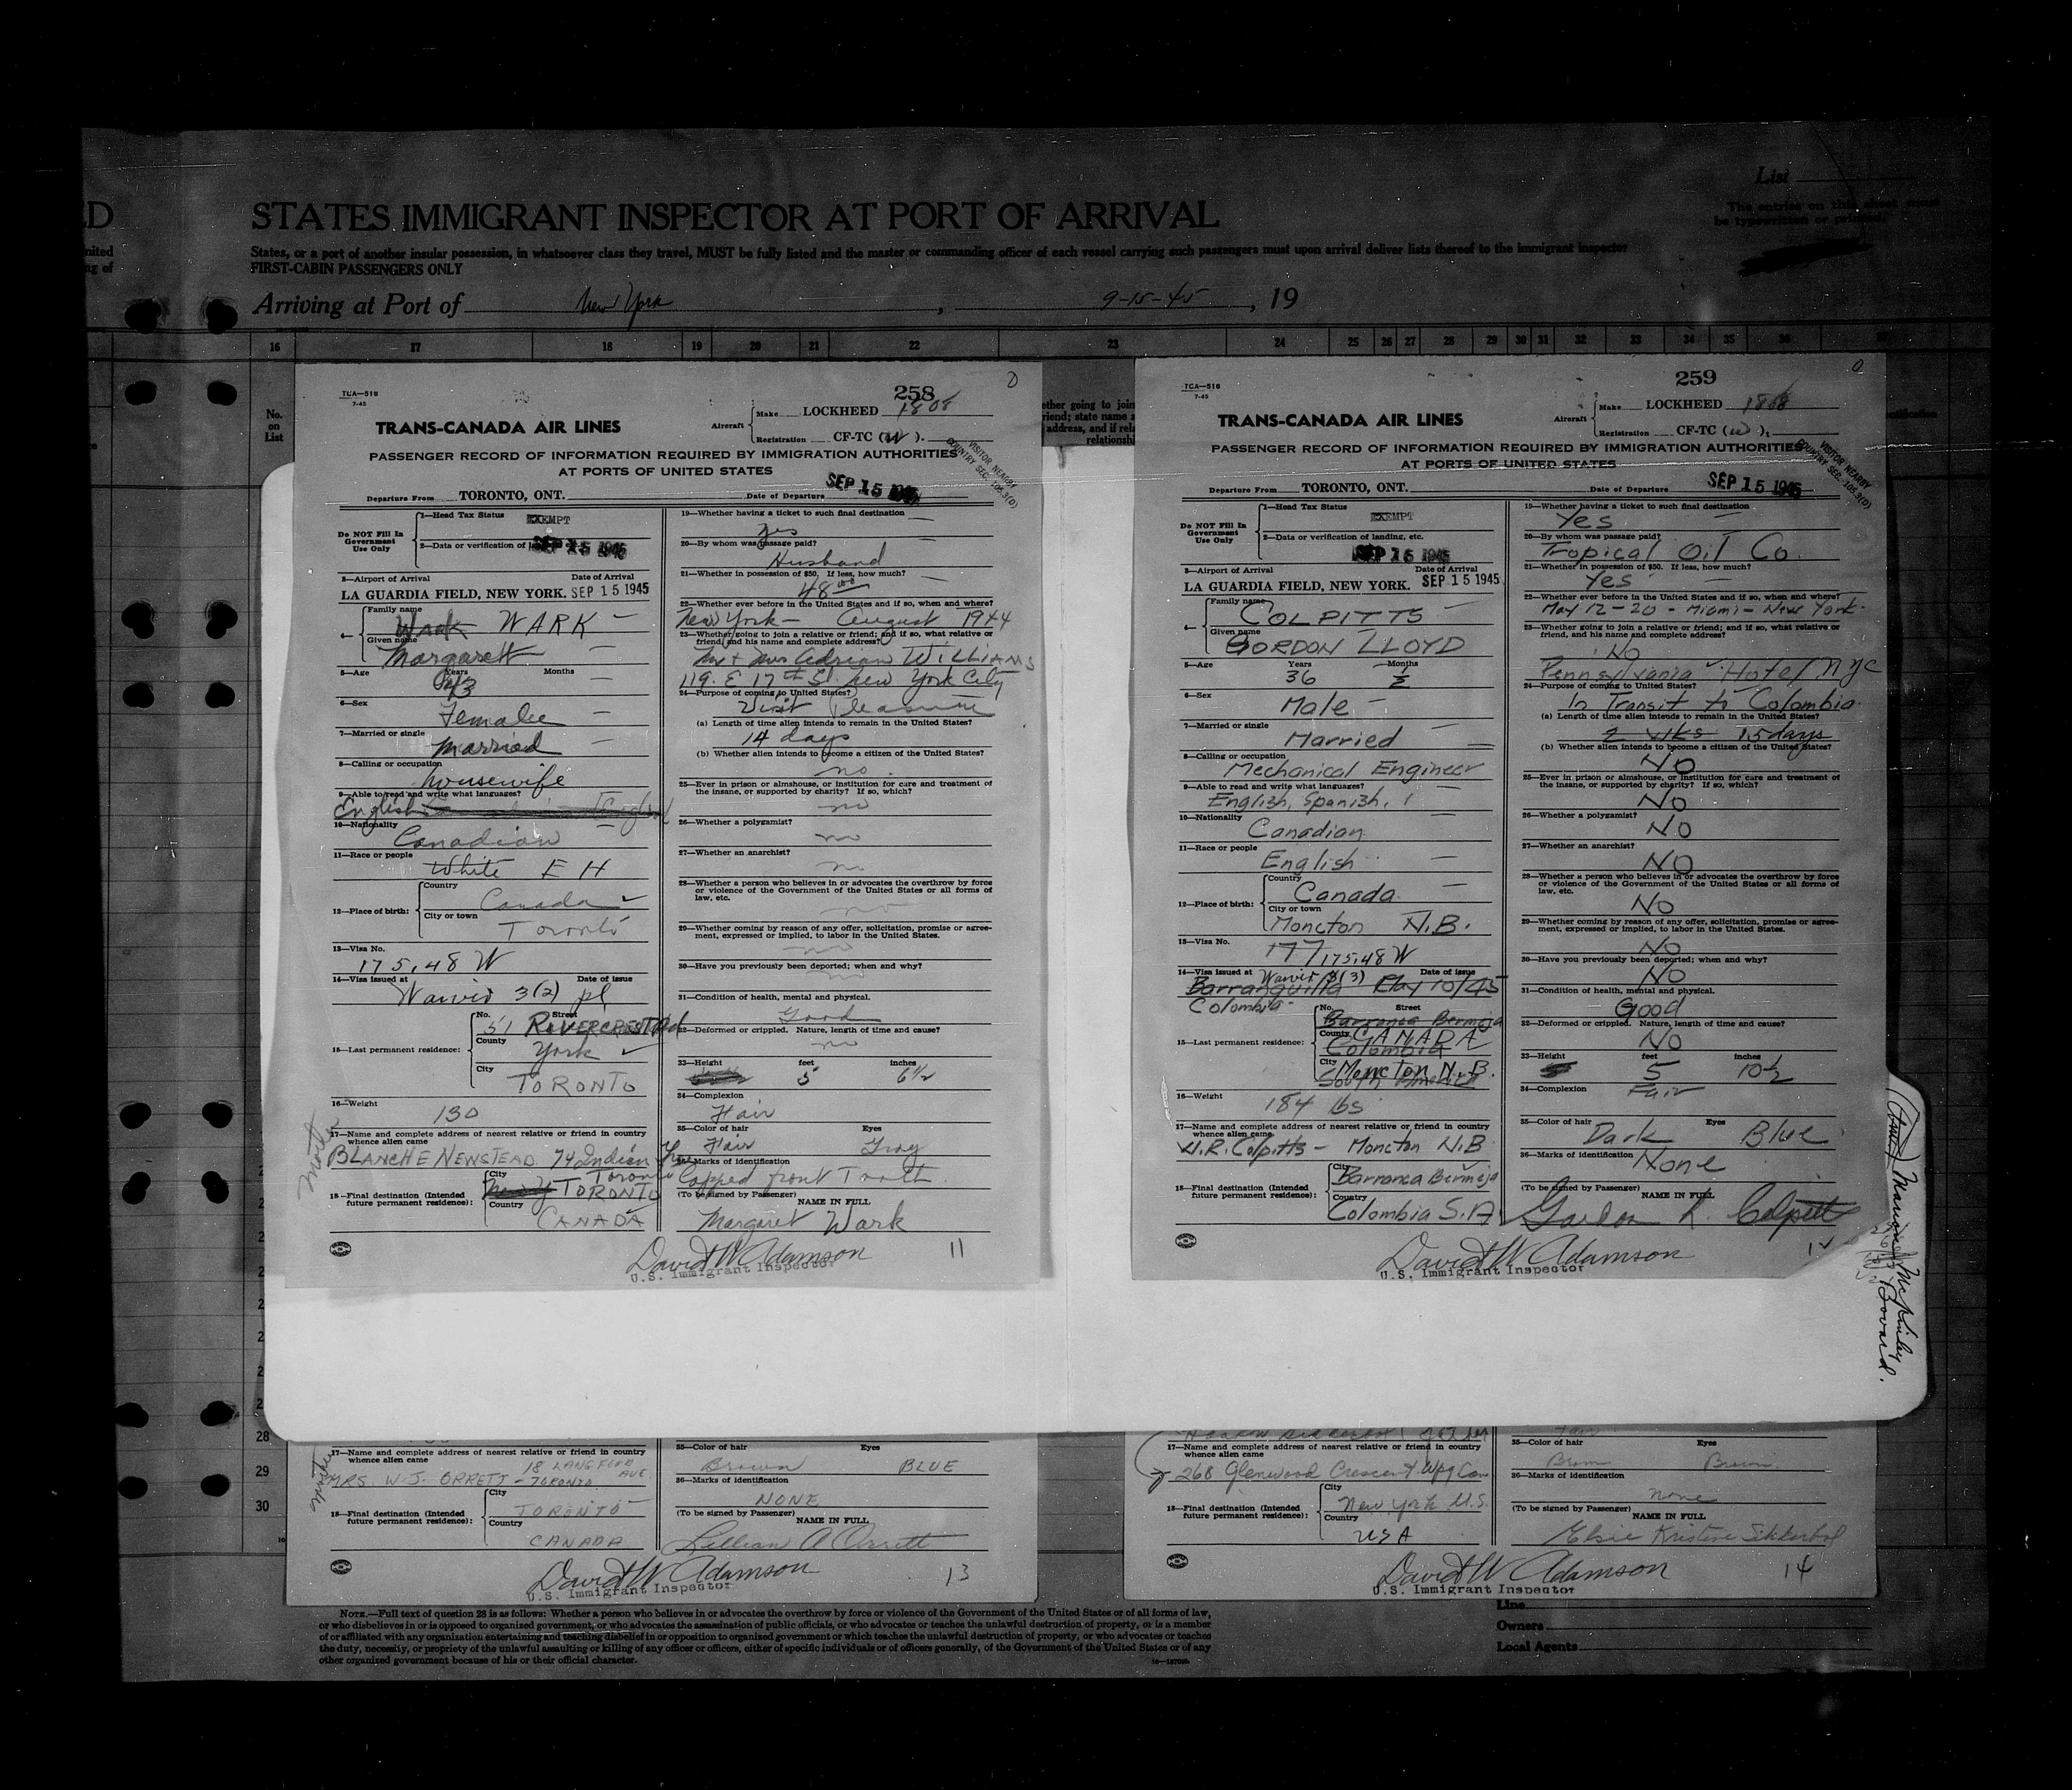 D
nited
ng of
STATES IMMIGRANT INSPECTOR AT PORT OF ARRIVAL
List
The entries on this sheet must
be typewritten or printed.
States, or a port of another insular possession, in whatsoever class they travel, MUST be fully listed and the master or commanding officer of each vessel carrying such passengers must upon arrival deliver lists thereof to the immigrant inspector
FIRST-CABIN PASSENGERS ONLY
Arriving at Port of New York, 9-15-45, 19
16 17 18 19 20 21 22 23 24 25 26 27 28 29 30 31 32 33 34 35 36
No.
on
List
ether going to join
riend; state name a
address, and if rela
relationshi
TCA—518
7-45
258
TRANS-CANADA AIR LINES
Aircraft
Make LOCKHEED 1808
Registration CF-TC (W).
PASSENGER RECORD OF INFORMATION REQUIRED BY IMMIGRATION AUTHORITIES
AT PORTS OF UNITED STATES
VISITOR NEARBY
COUNTRY SEC. 105.3(D)
Departure From TORONTO, ONT. Date of Departure SEP 15 1945
Do NOT Fill In
Government
Use Only
1—Head Tax Status EXEMPT
2—Data or verification of SEP 15 1945
3—Airport of Arrival Date of Arrival
LA GUARDIA FIELD, NEW YORK. SEP 15 1945
4—
Family name
Wark WARK
Given name
Margarett
5—Age Years Months
43
6—Sex
Female
7—Married or single
Married
8—Calling or occupation
housewife
9—Able to read and write what languages?
English
10—Nationality
Canadian
11—Race or people
White E H
12—Place of birth:
Country
Canada
City or town
Toronto
13—Visa No.
175.48 W
14—Visa issued at Date of issue
Waived 3(2) pl
15—Last permanent residence:
No. Street
51 RIVERCREST Rd
County
York
City
TORONTO
16—Weight
130
17—Name and complete address of nearest relative or friend in country
whence alien came
Mother
BLANCHE NEWSTEAD 74 Indian
Toronto
18—Final destination (Intended
future permanent residence):
City
TORONTO
Country
CANADA
19—Whether having a ticket to such final destination
yes
20—By whom was passage paid?
Husband
21—Whether in possession of $50. If less, how much?
48.00
22—Whether ever before in the United States and if so, when and where?
New York — August 1944
23—Whether going to join a relative or friend; and if so, what relative or
friend, and his name and complete address?
Mr + Mrs Adrian WILLIAMS
119. E 17th St. New York City
24—Purpose of coming to United States?
Visit Pleasure
(a) Length of time alien intends to remain in the United States?
14 days
(b) Whether alien intends to become a citizen of the United States?
no
25—Ever in prison or almshouse, or institution for care and treatment of
the insane, or supported by charity? If so, which?
no
26—Whether a polygamist?
no
27—Whether an anarchist?
no
28—Whether a person who believes in or advocates the overthrow by force
or violence of the Government of the United States or all forms of
law, etc.
no
29—Whether coming by reason of any offer, solicitation, promise or agree-
ment, expressed or implied, to labor in the United States.
no
30—Have you previously been deported; when and why?
no
31—Condition of health, mental and physical.
Good
32—Deformed or crippled. Nature, length of time and cause?
no
33—Height feet inches
5 6½
34—Complexion
Fair
35—Color of hair Eyes
Fair Gray
36—Marks of identification
Capped front Tooth
(To be signed by Passenger)
NAME IN FULL
Margaret Wark
David W Adamson 11
U.S. Immigrant Inspector
TCA—518
7-45
259
TRANS-CANADA AIR LINES
Aircraft
Make LOCKHEED 1808
Registration CF-TC (W).
PASSENGER RECORD OF INFORMATION REQUIRED BY IMMIGRATION AUTHORITIES
AT PORTS OF UNITED STATES
VISITOR NEARBY
COUNTRY SEC. 105.3(D)
Departure From TORONTO, ONT. Date of Departure SEP 15 1945
Do NOT Fill In
Government
Use Only
1—Head Tax Status EXEMPT
2—Data or verification of landing, etc.
SEP 15 1945
3—Airport of Arrival Date of Arrival
LA GUARDIA FIELD, NEW YORK. SEP 15 1945
4—
Family name
COLPITTS
Given name
GORDON LLOYD
5—Age Years Months
36 ½
6—Sex
Male
7—Married or single
Married
8—Calling or occupation
Mechanical Engineer
9—Able to read and write what languages?
English, Spanish,
10—Nationality
Canadian
11—Race or people
English
12—Place of birth:
Country
Canada
City or town
Moncton N.B.
13—Visa No.
177 175.48 W
14—Visa issued at Waived 3(3) Date of issue
Barranquilla May 10/45
Colombia
15—Last permanent residence:
No. Street
Barranca Bermeja
County CANADA
Colombia
City Moncton N.B.
South America
16—Weight
184 lbs
17—Name and complete address of nearest relative or friend in country
whence alien came
W.R. Colpitts — Moncton N.B
18—Final destination (Intended
future permanent residence):
City
Barranca Bermeja
Country
Colombia S.A.
19—Whether having a ticket to such final destination
Yes
20—By whom was passage paid?
Tropical Oil Co.
21—Whether in possession of $50. If less, how much?
Yes
22—Whether ever before in the United States and if so, when and where?
May 12-20 - Miami - New York.
23—Whether going to join a relative or friend; and if so, what relative or
friend, and his name and complete address?
No
Pennsylvania Hotel NYC
24—Purpose of coming to United States?
In Transit to Colombia.
(a) Length of time alien intends to remain in the United States?
2 wks 15 days
(b) Whether alien intends to become a citizen of the United States?
No
25—Ever in prison or almshouse, or institution for care and treatment of
the insane, or supported by charity? If so, which?
No
26—Whether a polygamist?
No
27—Whether an anarchist?
No
28—Whether a person who believes in or advocates the overthrow by force
or violence of the Government of the United States or all forms of
law, etc.
No
29—Whether coming by reason of any offer, solicitation, promise or agree-
ment, expressed or implied, to labor in the United States.
No
30—Have you previously been deported; when and why?
No
31—Condition of health, mental and physical.
Good
32—Deformed or crippled. Nature, length of time and cause?
No
33—Height feet inches
5 10½
34—Complexion
Fair
35—Color of hair Eyes
Dark Blue
36—Marks of identification
None
(To be signed by Passenger)
NAME IN FULL
Gordon L. Colpitts
David W Adamson 12
U.S. Immigrant Inspector
(Aunt) Marion McKinley
Bovard.
28
29
30
17—Name and complete address of nearest relative or friend in country
whence alien came
Mother
18 LANGFORD
MRS. W.J. ORRETT - TORONTO. AVE.
18—Final destination (Intended
future permanent residence):
City
TORONTO
Country
CANADA
35—Color of hair Eyes
Brown BLUE
36—Marks of identification
NONE
(To be signed by Passenger)
NAME IN FULL
Lillian A Orrett
David W Adamson 13
U.S. Immigrant Inspector
17—Name and complete address of nearest relative or friend in country
whence alien came
268 Glenwood Crescent. Wpg Can
18—Final destination (Intended
future permanent residence):
City
New York U.S.
Country
USA
35—Color of hair Eyes
Brown Brown
36—Marks of identification
none
(To be signed by Passenger)
NAME IN FULL
Elsie Kristine Sikkerbol
David W Adamson 14
U.S. Immigrant Inspector
NOTE.—Full text of question 28 is as follows: Whether a person who believes in or advocates the overthrow by force or violence of the Government of the United States or of all forms of law,
or who disbelieves in or is opposed to organized government, or who advocates the assassination of public officials, or who advocates or teaches the unlawful destruction of property, or is a member
of or affiliated with any organization entertaining and teaching disbelief in or opposition to organized government or which teaches the unlawful destruction of property, or who advocates or teaches
the duty, necessity, or propriety of the unlawful assaulting or killing of any officer or officers, either of specific individuals or of officers generally, of the Government of the United States or of any
other organized government because of his or their official character.
Line
Owners
Local Agents